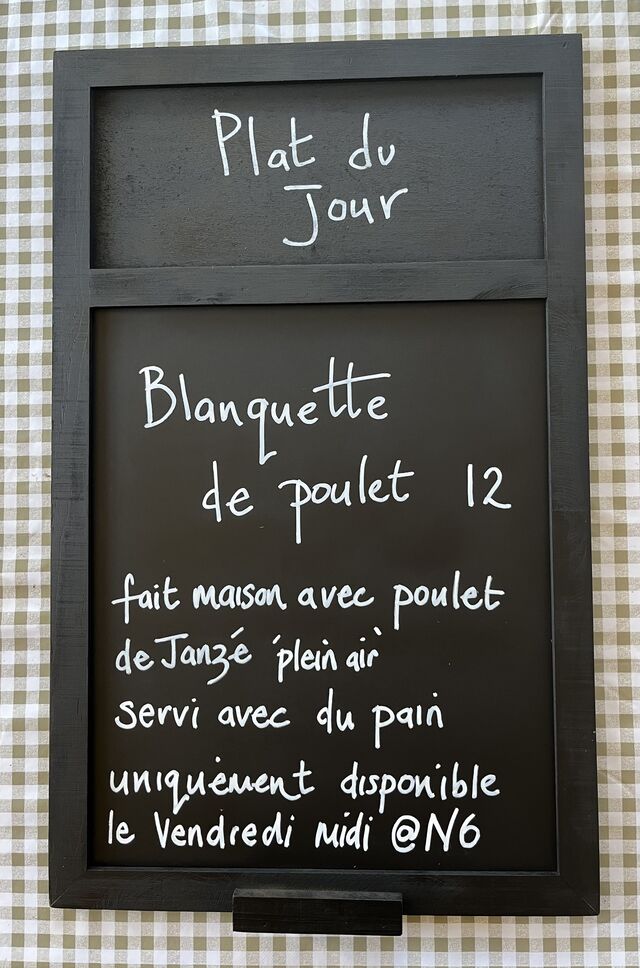 Plat du
Jour
Blanquette
de poulet 12
fait maison avec poulet
de Janzé 'plein air'
servi avec du pain
uniquement disponible
le Vendredi midi @N6